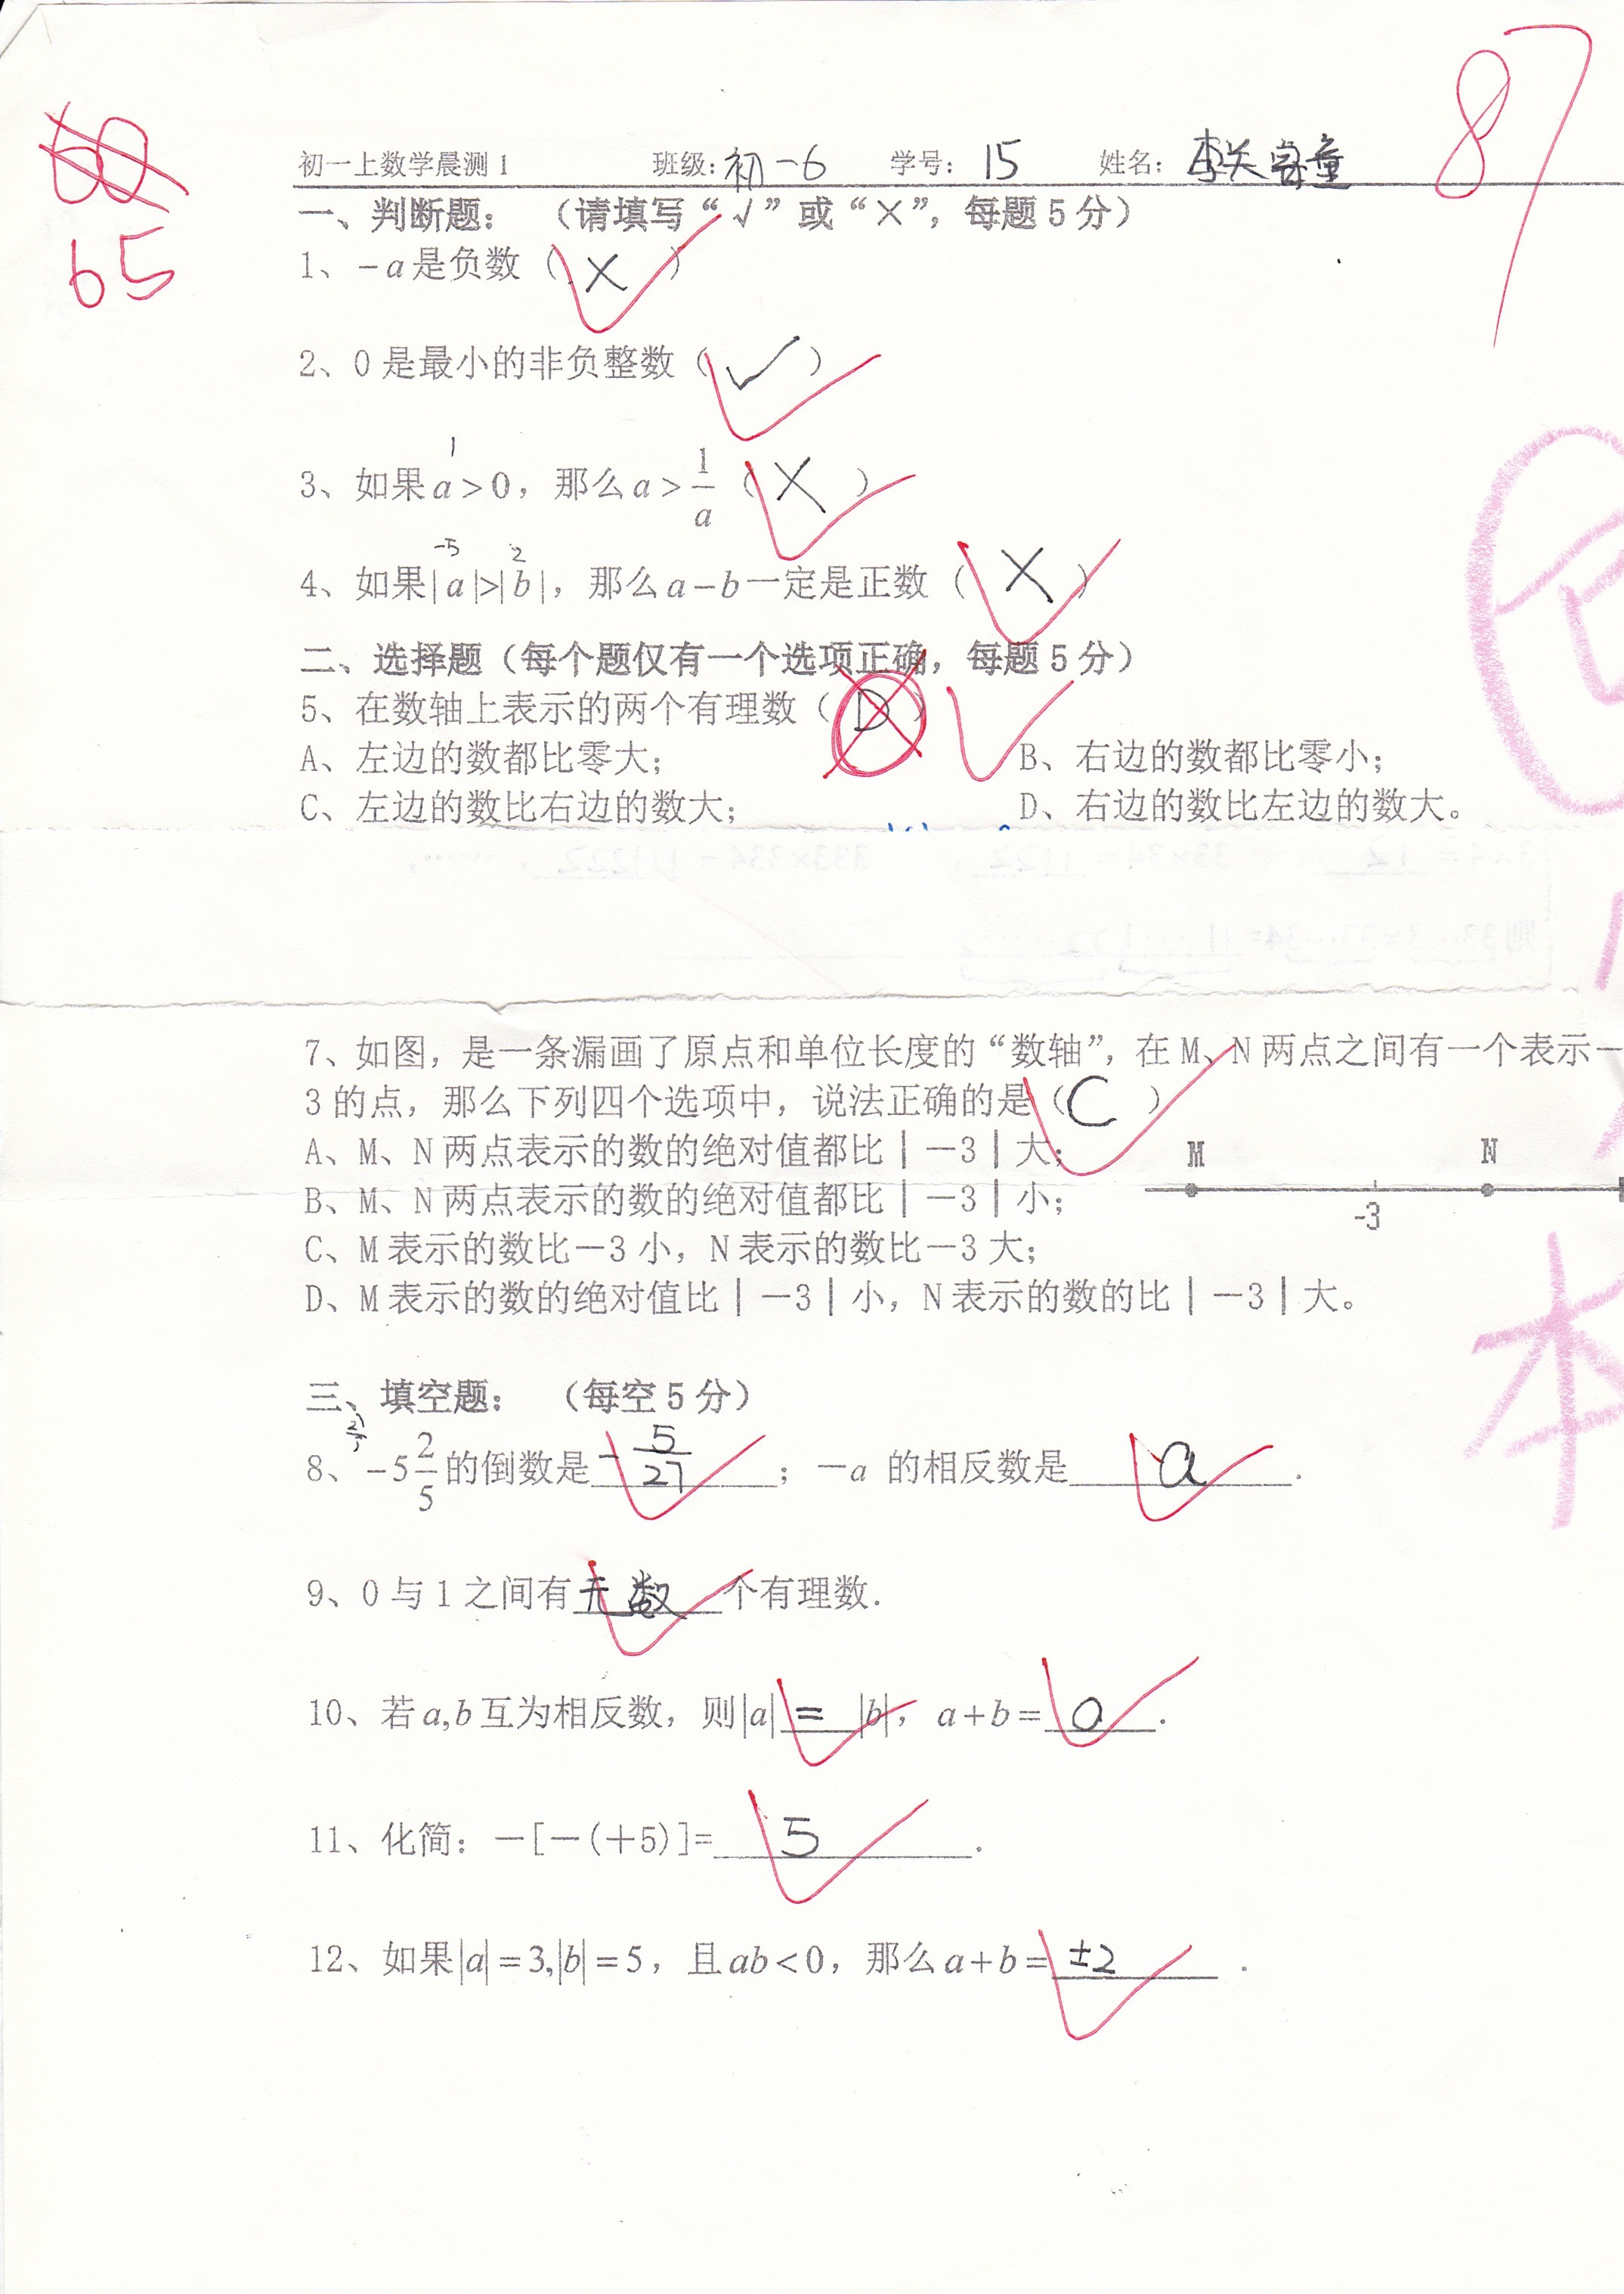 87
60
65
初一上数学晨测1 班级:初一6 学号:15 姓名:
一、判断题：（请填写“√”或“×”，每题5分）
1、-a是负数（×）
2、0是最小的非负整数（√）
1
3、如果a>0，那么a>1/a（×）
-5 2
4、如果|a|>|b|，那么a-b一定是正数（×）
二、选择题（每个题仅有一个选项正确，每题5分）
5、在数轴上表示的两个有理数（D）
A、左边的数都比零大； B、右边的数都比零小；
C、左边的数比右边的数大； D、右边的数比左边的数大。
3×4=12 33×34=1122 333×334=111222，……，
7、如图，是一条漏画了原点和单位长度的“数轴”，在M、N两点之间有一个表示—
3的点，那么下列四个选项中，说法正确的是（C）
A、M、N两点表示的数的绝对值都比｜－3｜大；
M N
B、M、N两点表示的数的绝对值都比｜－3｜小；
-3
C、M表示的数比－3小，N表示的数比－3大；
D、M表示的数的绝对值比｜－3｜小，N表示的数的比｜－3｜大。
本
三、填空题：（每空5分）
8、-5 2/5的倒数是-5/27；—a 的相反数是a.
9、0与1之间有无数个有理数.
10、若a,b互为相反数，则|a|=|b|，a+b=0.
11、化简：－[－(＋5)]=5.
12、如果|a|=3,|b|=5，且ab<0，那么a+b=±2.